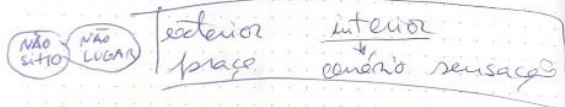 NÃO SÍTIO
NÃO LUGAR
exterior interior
praça cenário sensação